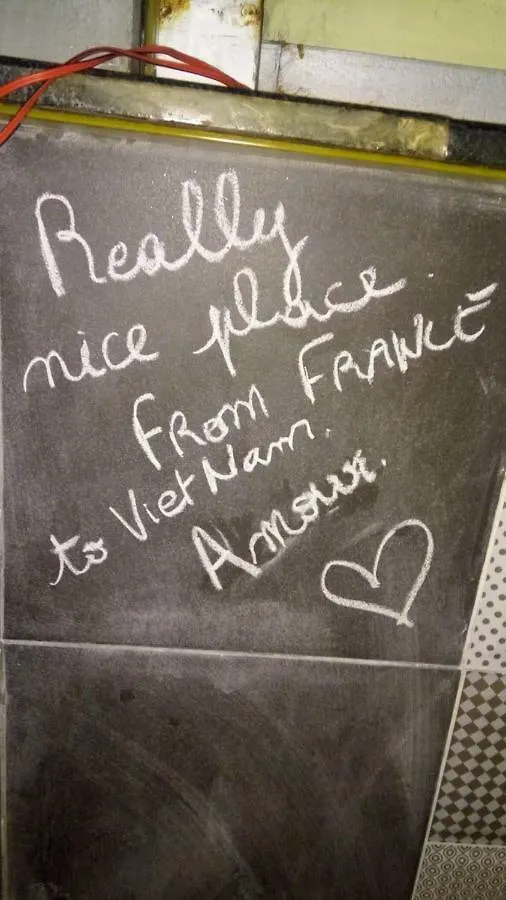 Really
nice place.
FROM FRANCE
to VietNam.
Amour.